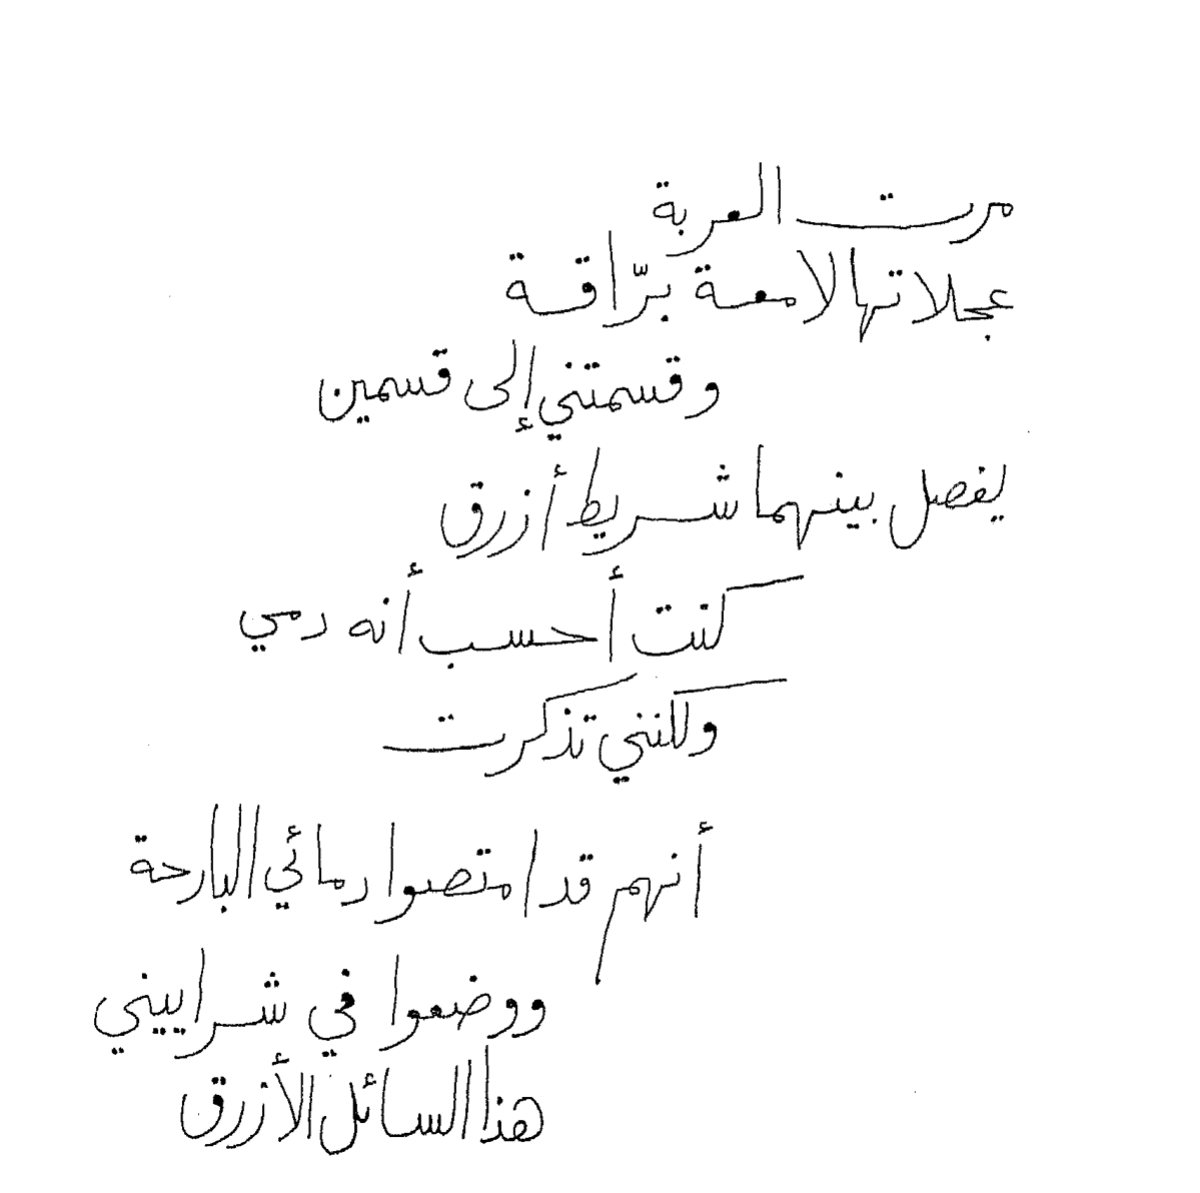 مرت العربة
عجلاتها لامعة برّاقة
وقسمتني إلى قسمين
يفصل بينهما شريط أزرق
كنت أحسب أنه دمي
ولكنني تذكرت
أنهم قد امتصوا دمائي البارحة
ووضعوا في شراييني
هذا السائل الأزرق